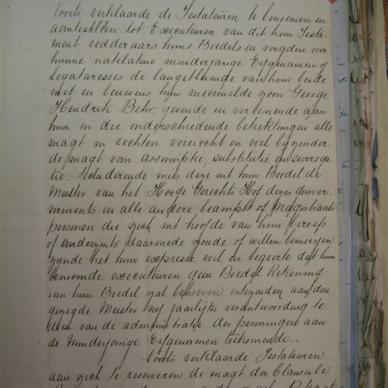 Voorts verklaarde de Testateuren te benoemen en
aantestellen tot Executeuren van dit hun Testa-
ment, redderaars huns Boedels en voogden over
hunne natelatene minderjarige Erfgenamen of
Legataresses de langstlevende van hun beide
met en benevens hun meermelde zoon George
Hendrik Behr, gevende en verleenende aan
hun in die onderscheidene betrekkingen alle
magt in rechten vereischt en wel byzonder
de magt van assumptie, substitutie en surroga-
tie. Secluderende mits deze uit hun Boedel de
Meester van het Hooge Gerechts Hof dezes Gouver-
nements en alle andere beampte of Magistraats
personen die zich uit hoofde van hun beroep
of anderzints daarmede zoude of willen bemoeyen
zynde het hun expresse wil en begeerte dat hun
benoemde executeuren geen Boedel Rekening
van hun Boedel zal behoeven intezenden aan den
gezegde Meester nog jaarlyks verantwoording te
doen van de administratie der penningen aan
de Minderjarige Erfgenamen toekomende.—
Voorts verklaarde Testateuren
aan zich te reserveren de magt der Clausule